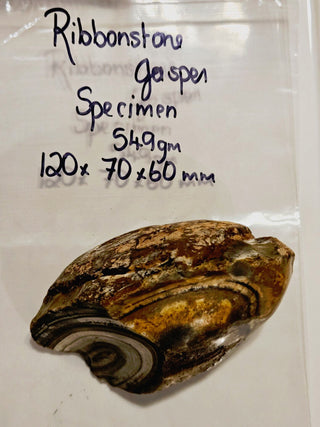 Ribbonstone
Jasper
Specimen
549gm
120x 70x60mm